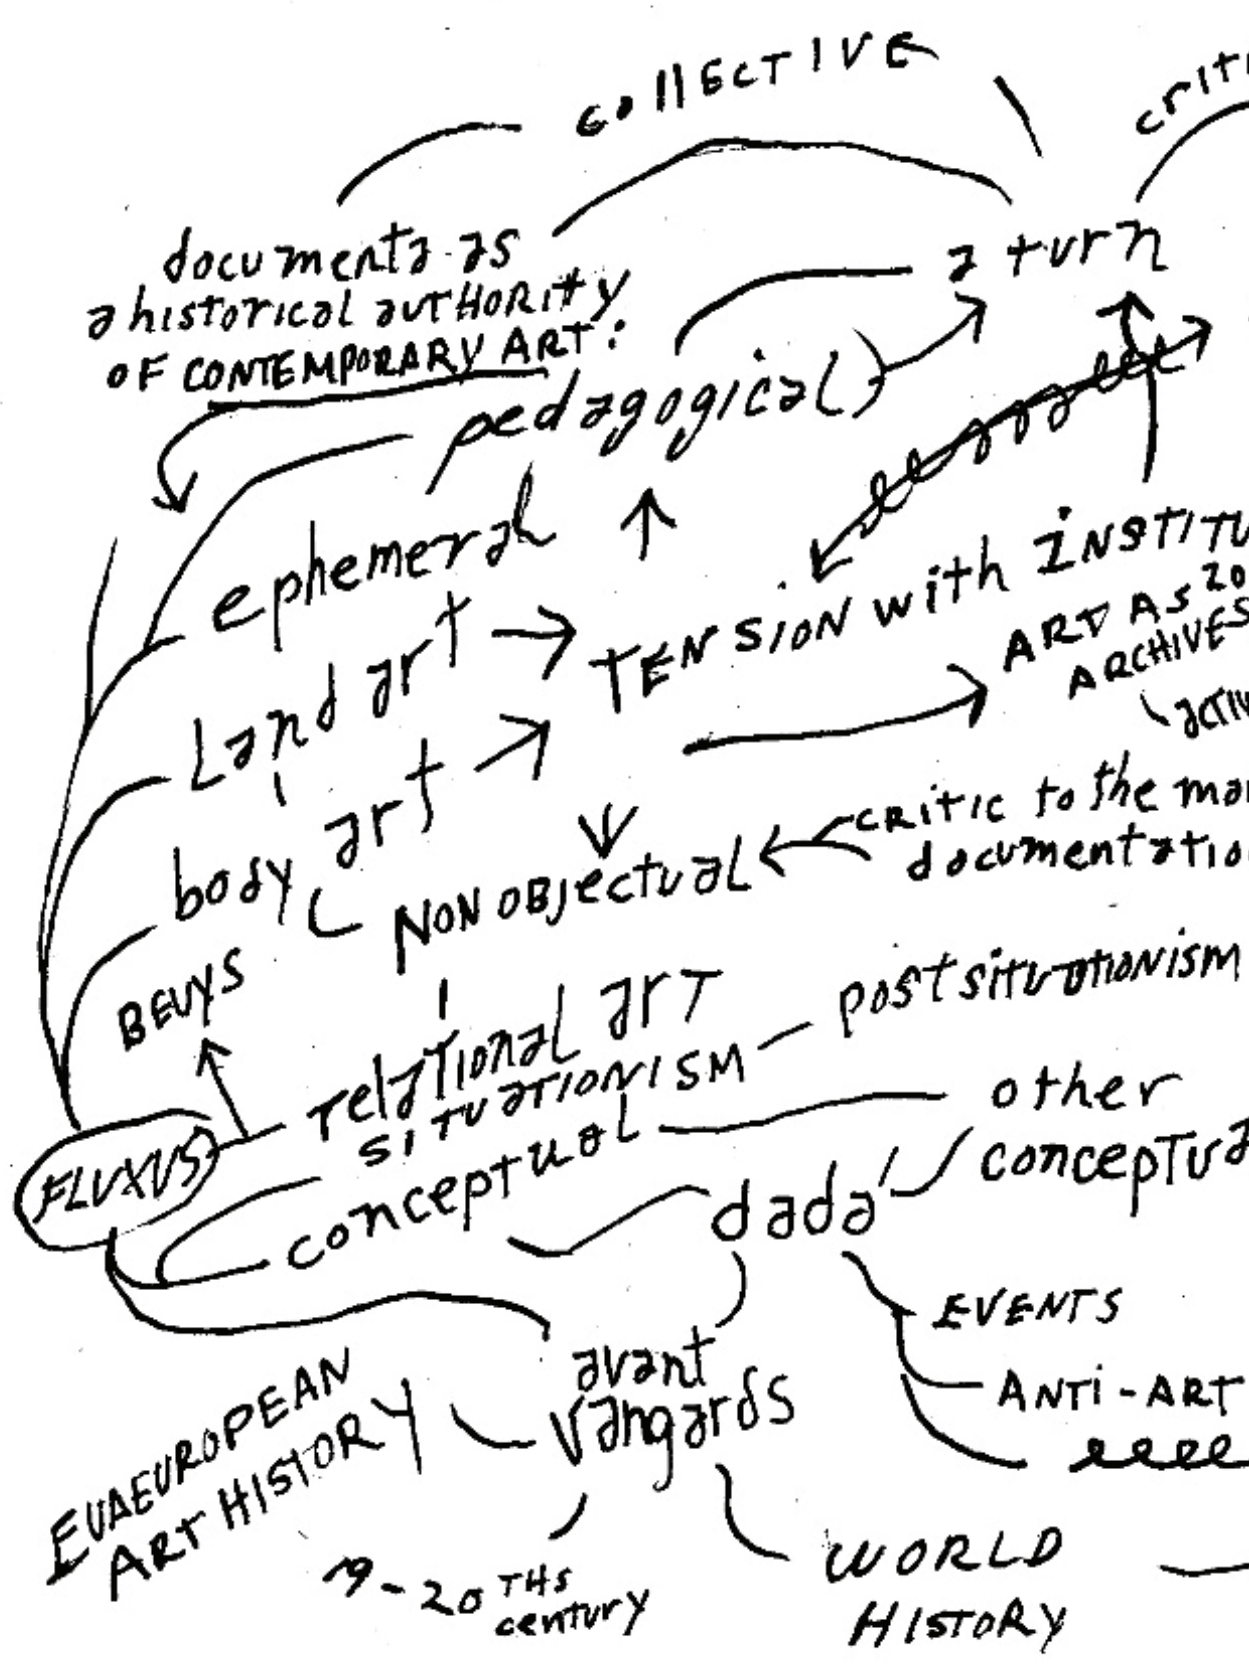 collective
criti
documenta as
a historical authority
of contemporary art:
a turn
pedagogical)
ephemeral
Land art
TENSION with INSTITU
ART AS 20
ARCHIVES
activ
body art
critic to the mar
documentatio
NON OBJECTUAL
BEUYS
relational art
situationism
postsituationism
FLUXUS
conceptual
other
conceptua
dadá
EVENTS
ANTI-ART
avant
vangards
EUAEUROPEAN
ART HISTORY
19-20 THS
century
WORLD
HISTORY